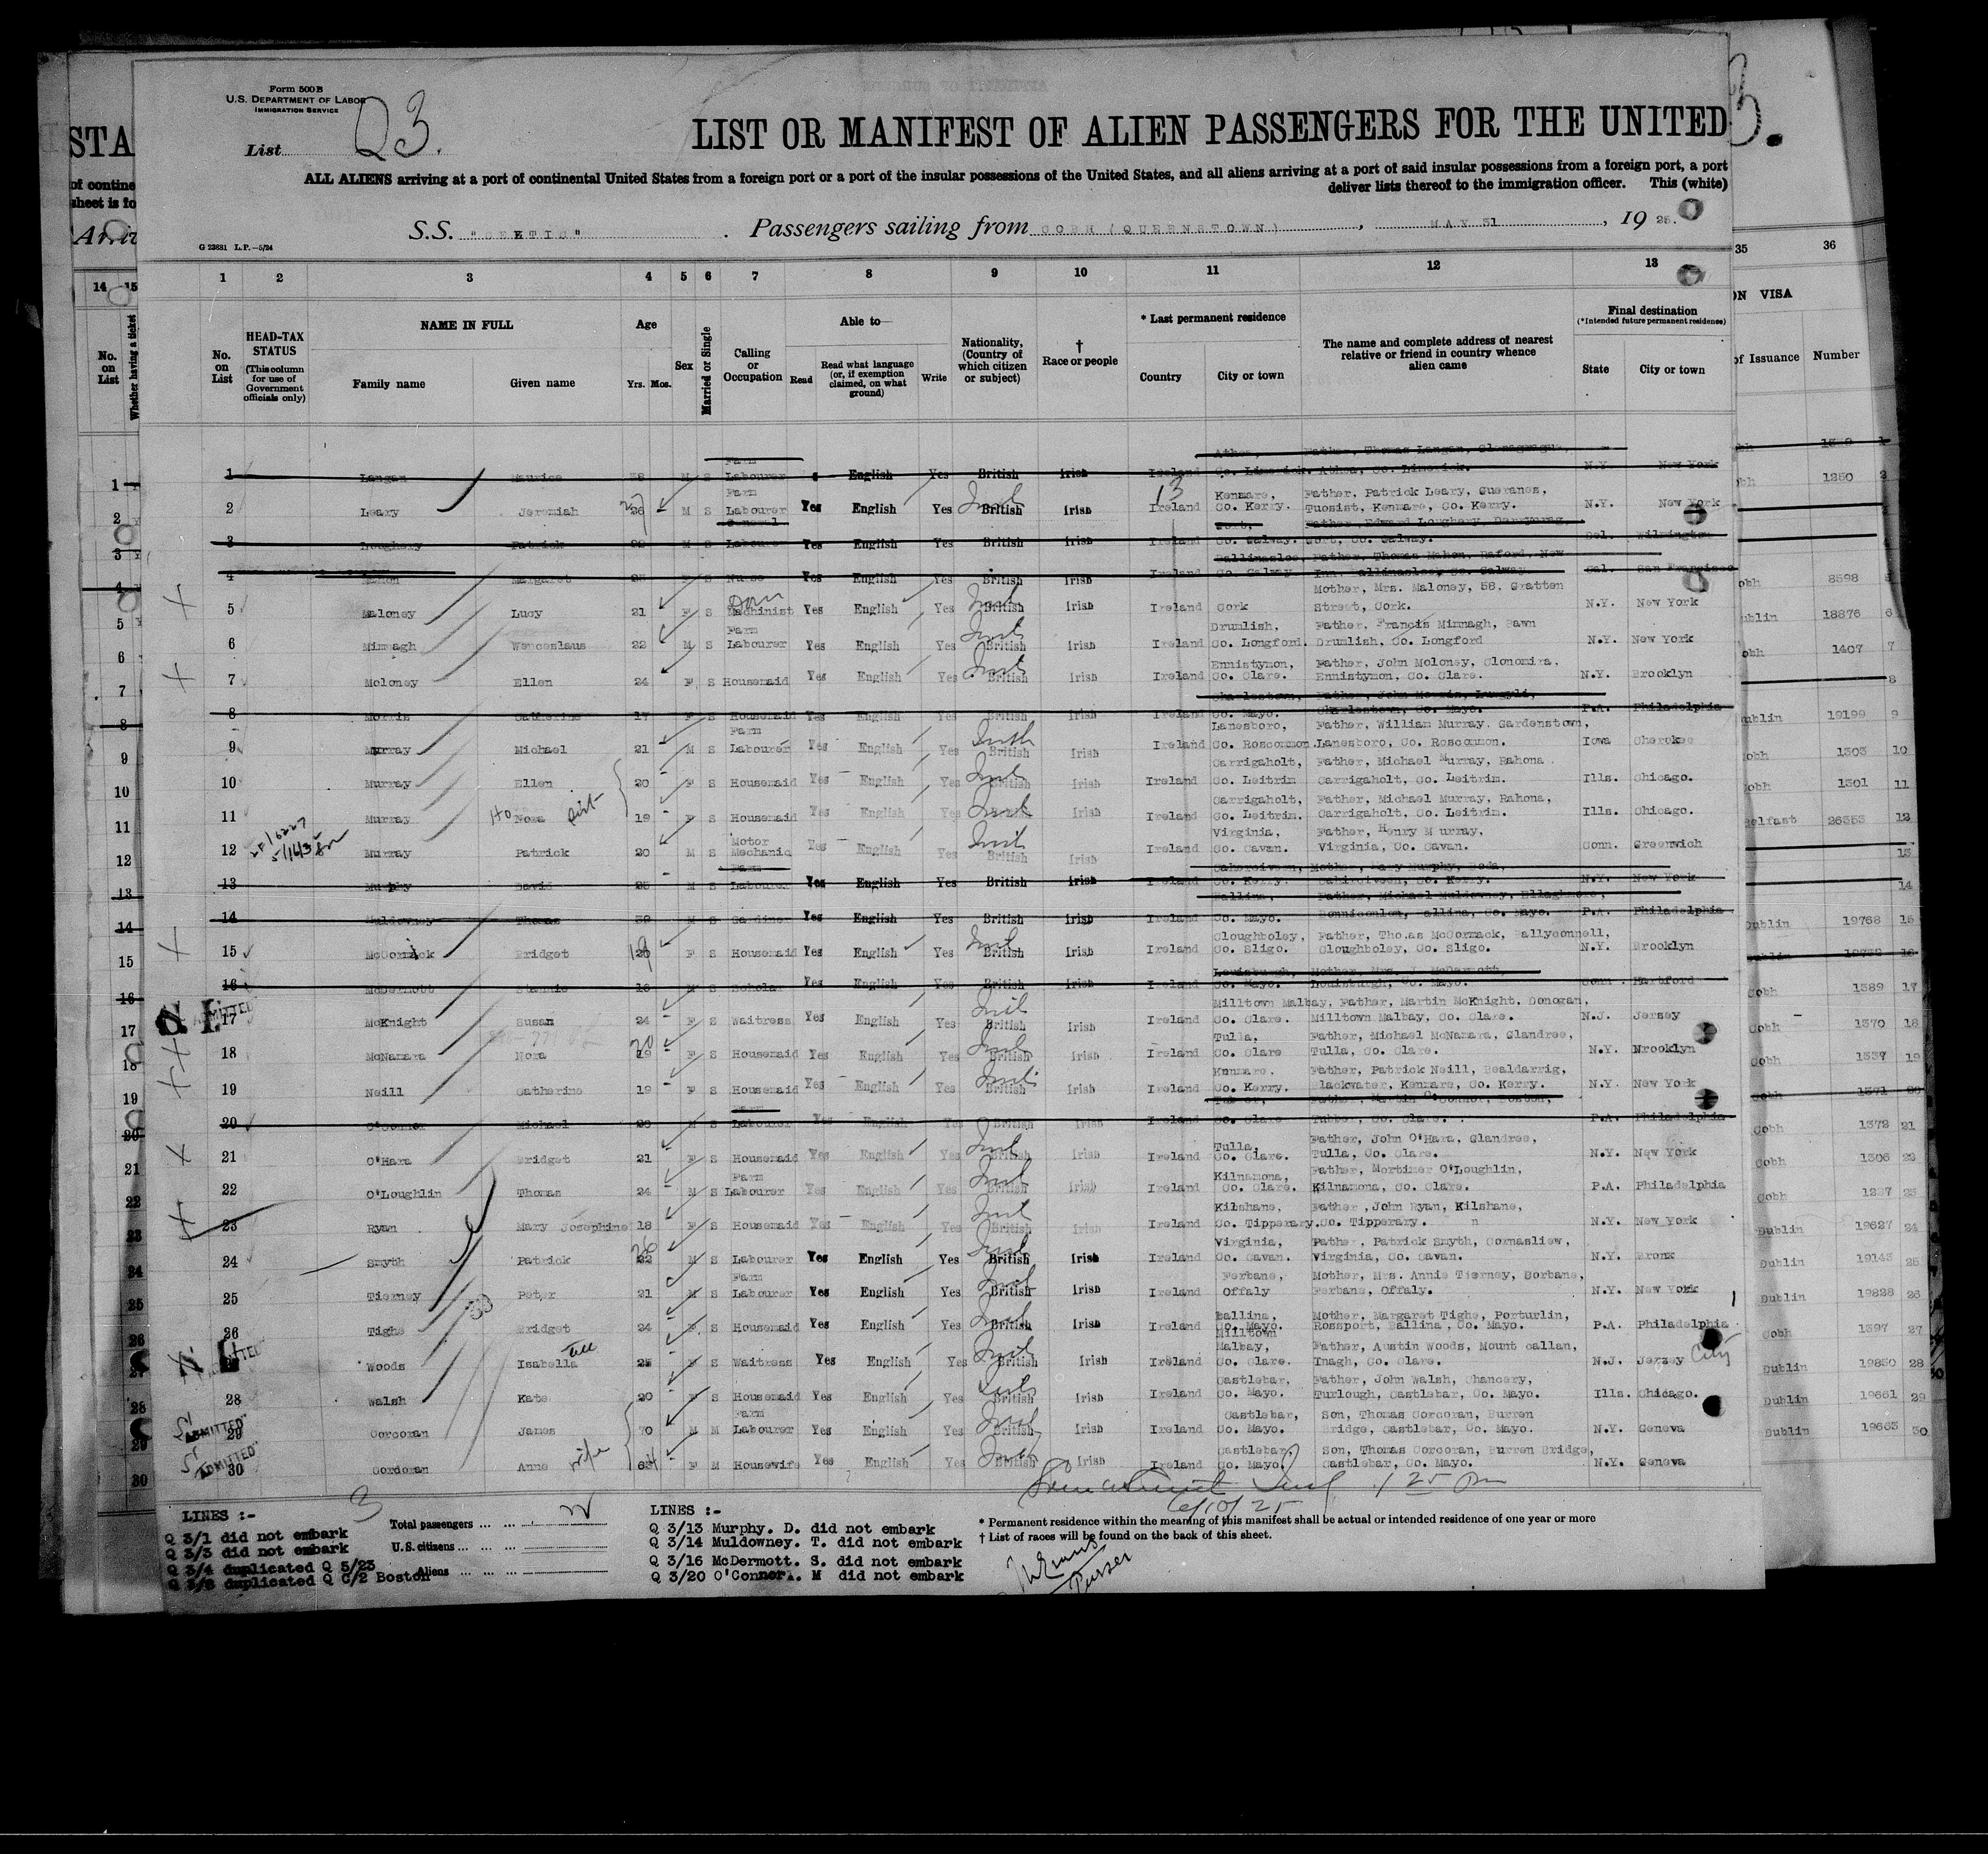 Form 500B
U.S. DEPARTMENT OF LABOR
IMMIGRATION SERVICE
List Q3.
STA
LIST OR MANIFEST OF ALIEN PASSENGERS FOR THE UNITED
of contine
sheet is fo
ALL ALIENS arriving at a port of continental United States from a foreign port or a port of the insular possessions of the United States, and all aliens arriving at a port of said insular possessions from a foreign port, a port
deliver lists thereof to the immigration officer. This (white)
S.S. Passengers sailing from COBH (QUEENSTOWN), MAY 31, 1925.
G 23881 L.P.—5/24
14 15 1 2 3 4 5 6 7 8 9 10 11 12 13 35 36
No. on List
Whether having a ticket
No. on List
HEAD-TAX STATUS
(This column for use of Government officials only)
NAME IN FULL
Family name Given name
Age
Yrs. Mos.
Sex
Married or Single
Calling or Occupation
Able to—
Read
Read what language (or, if exemption claimed, on what ground)
Write
Nationality, (Country of which citizen or subject)
† Race or people
* Last permanent residence
Country City or town
The name and complete address of nearest relative or friend in country whence alien came
Final destination
(*Intended future permanent residence)
State City or town
ON VISA
of Issuance Number
1 Langan Maurice 38 M S Farm Labourer English Yes British Irish Ireland Athea, Co. Limerick. Father, Thomas Langan, Athea, Co. Limerick. N.Y. New York
2 Leary Jeremiah 26 27 M S Farm Labourer Yes English Yes British Irish Ireland Kenmare, Co. Kerry. Father, Patrick Leary, Gueranes, Tuosist, Kenmare, Co. Kerry. N.Y. New York 1250 2
3 Loughery Patrick M S General Labourer Yes English Yes British Irish Ireland Gort, Co. Galway. Father, Edward Loughery, Gort, Co. Galway. Del. Wilmington
4 Mahon Margaret F S Nurse Yes English Yes British Irish Ireland Ballinasloe, Co. Galway Father, Thomas Mahon, Raford, New Inn, Ballinasloe, Co. Galway Cal. San Francisco
5 Maloney Lucy 21 F S Machinist Yes English Yes British Irish Ireland Cork Mother, Mrs. Maloney, 58, Gratten Street, Cork. N.Y. New York 8598
6 Minnagh Wenceslaus 22 M S Farm Labourer Yes English Yes British Irish Ireland Drumlish, Co. Longford. Father, Francis Minnagh, Fawn Drumlish, Co. Longford N.Y. New York 18876 6
7 Moloney Ellen 24 F S Housemaid Yes English Yes British Irish Ireland Ennistymon, Co. Clare. Father, John Moloney, Clonomira, Ennistymon, Co. Clare. N.Y. Brooklyn 1407 7
8 Morris Catherine 17 F S Housemaid Yes English Yes British Irish Ireland Charlestown, Co. Mayo. Father, John Morris, Charlestown, Co. Mayo. P.A. Philadelphia
9 Murray Michael 21 M S Farm Labourer Yes English Yes Irish British Irish Ireland Lanesboro, Co. Roscommon. Father, William Murray, Gardenstown, Lanesboro, Co. Roscommon. Iowa Cherokee Dublin 19199 9
10 Murray Ellen 20 F S Housemaid Yes English Yes British Irish Ireland Carrigaholt, Co. Leitrim Father, Michael Murray, Rahona. Carrigaholt, Co. Leitrim. Ills. Chicago. Cobh 1303 10
11 Murray Nora 19 F S Housemaid Yes English Yes British Irish Ireland Carrigaholt, Co. Leitrim. Father, Michael Murray, Rahona, Carrigaholt, Co. Leitrim. Ills. Chicago. Cobh 1301 11
12 Murray Patrick 20 M S Motor Mechanic Yes English Yes British Irish Ireland Virginia, Co. Cavan. Father, Henry Murray, Virginia, Co. Cavan. Conn. Greenwich Belfast 26353 12
13 Murphy David 25 M S Farm Labourer Yes English Yes British Irish Ireland Cahirciveen, Co. Kerry. Mother, Mary Murphy, Cahirciveen, Co. Kerry. N.Y. New York
14 Muldowney Thomas 39 M S Gardiner Yes English Yes British Irish Ireland Ballina, Co. Mayo. Father, Michael Muldowney, Bonniconlon, Ballina, Co. Mayo. P.A. Philadelphia
15 McCormick Bridget 20 19 F S Housemaid Yes English Yes British Irish Ireland Cloughboley, Co. Sligo. Father, Thomas McCormack, Ballyconnell, Cloughboley, Co. Sligo. N.Y. Brooklyn Dublin 19768 15
16 McDermott S Scholar Yes English Yes British Irish Ireland Louisburgh, Co. Mayo. Mother, Mrs. J. McDermott, Louisburgh, Co. Mayo. Conn. Hartford
17 ADMITTED McKnight Susan 24 F S Waitress Yes English Yes British Irish Ireland Milltown Malbay, Co. Clare. Father, Martin McKnight, Donogan, Milltown Malbay, Co. Clare. N.J. Jersey Cobh 1389 17
18 McNamara Nora 19 20 F S Housemaid Yes English Yes British Irish Ireland Tulla, Co. Clare Father, Michael McNamara, Glandree, Tulla, Co. Clare. N.Y. Nrooklyn Cobh 1370 18
19 Neill Catherine 19 F S Housemaid Yes English Yes British Irish Ireland Kenmare. Co. Kerry. Father, Patrick Neill, Bealdarrig, Blackwater, Kenmare, Co. Kerry. N.Y. New York Cobh 1337 19
20 O'Connor Michael M S Farm Labourer Yes English Yes British Irish Ireland Tubber, Co. Clare Father, Martin O'Connor, Boston, Tubber, Co. Clare. P.A. Philadelphia Cobh 1371 20
21 O'Hara Bridget 21 F S Housemaid Yes English Yes British Irish Ireland Tulla, Co. Clare. Father, John O'Hara, Glandree, Tulla, Co. Clare. N.Y. New York Cobh 1372 21
22 O'Loughlin Thomas 24 M S Farm Labourer Yes English Yes British Irish Ireland Kilnamona, Co. Clare. Father, Mortimer O'Loughlin, Kilnamona, Co. Clare. P.A. Philadelphia Cobh 1306 22
23 Ryan Mary Josephine 18 F S Housemaid Yes English Yes British Irish Ireland Kilshane, Co. Tipperary. Father, John Ryan, Kilshane, Co. Tipperary. N.Y. New York Cobh 23
24 Smyth Patrick 22 26 M S Labourer Yes English Yes British Irish Ireland Virginia, Co. Cavan. Father, Patrick Smyth, Cornasliew, Virginia, Co. Cavan. N.Y. Bronx Dublin 19627 24
25 Tierney Peter 21 M S Farm Labourer Yes English Yes British Irish Ireland Ferbane, Offaly Mother, Mrs. Annie Tierney, Sorbane, Ferbane, Offaly. N.Y. New York Dublin 19143 25
26 Tighe Bridget 24 F S Housemaid Yes English Yes British Irish Ireland Ballina, Co. Mayo. Mother, Margaret Tighe, Porturlin, Rossport, Ballina, Co. Mayo. P.A. Philadelphia Dublin 19828 26
27 Woods Isabella 25 F S Waitress Yes English Yes British Irish Ireland Milltown Malbay, Co. Clare. Father, Austin Woods, Mount Callan, Inagh, Co. Clare. N.J. Jersey City Cobh 1397 27
28 Walsh Kate 20 F S Housemaid Yes English Yes British Irish Ireland Castlebar, Co. Mayo. Father, John Walsh, Chancery, Turlough, Castlebar, Co. Mayo. Ills. Chicago. Dublin 19850 28
29 ADMITTED Corcoran James 70 M M Farm Labourer Yes English Yes British Irish Ireland Castlebar, Co. Mayo. Son, Thomas Corcoran, Burren Bridge, Castlebar, Co. Mayo. N.Y. Geneva Dublin 19661 29
30 ADMITTED Corcoran Anne wife F M Housewife Yes English Yes British Irish Ireland Castlebar, Co. Mayo. Son, Thomas Corcoran, Burren Bridge, Castlebar, Co. Mayo. N.Y. Geneva Dublin 19663 30
6/10/25
LINES :-
Q 3/1 did not embark
Q 3/3 did not embark
Q 3/4 duplicated Q 5/23
Q 3/8 duplicated Q C/2 Boston
Total passengers
U.S. citizens
Aliens
LINES :-
Q 3/13 Murphy. D. did not embark
Q 3/14 Muldowney. T. did not embark
Q 3/16 McDermott. S. did not embark
Q 3/20 O'Connor. M did not embark
* Permanent residence within the meaning of this manifest shall be actual or intended residence of one year or more
† List of races will be found on the back of this sheet.
Purser